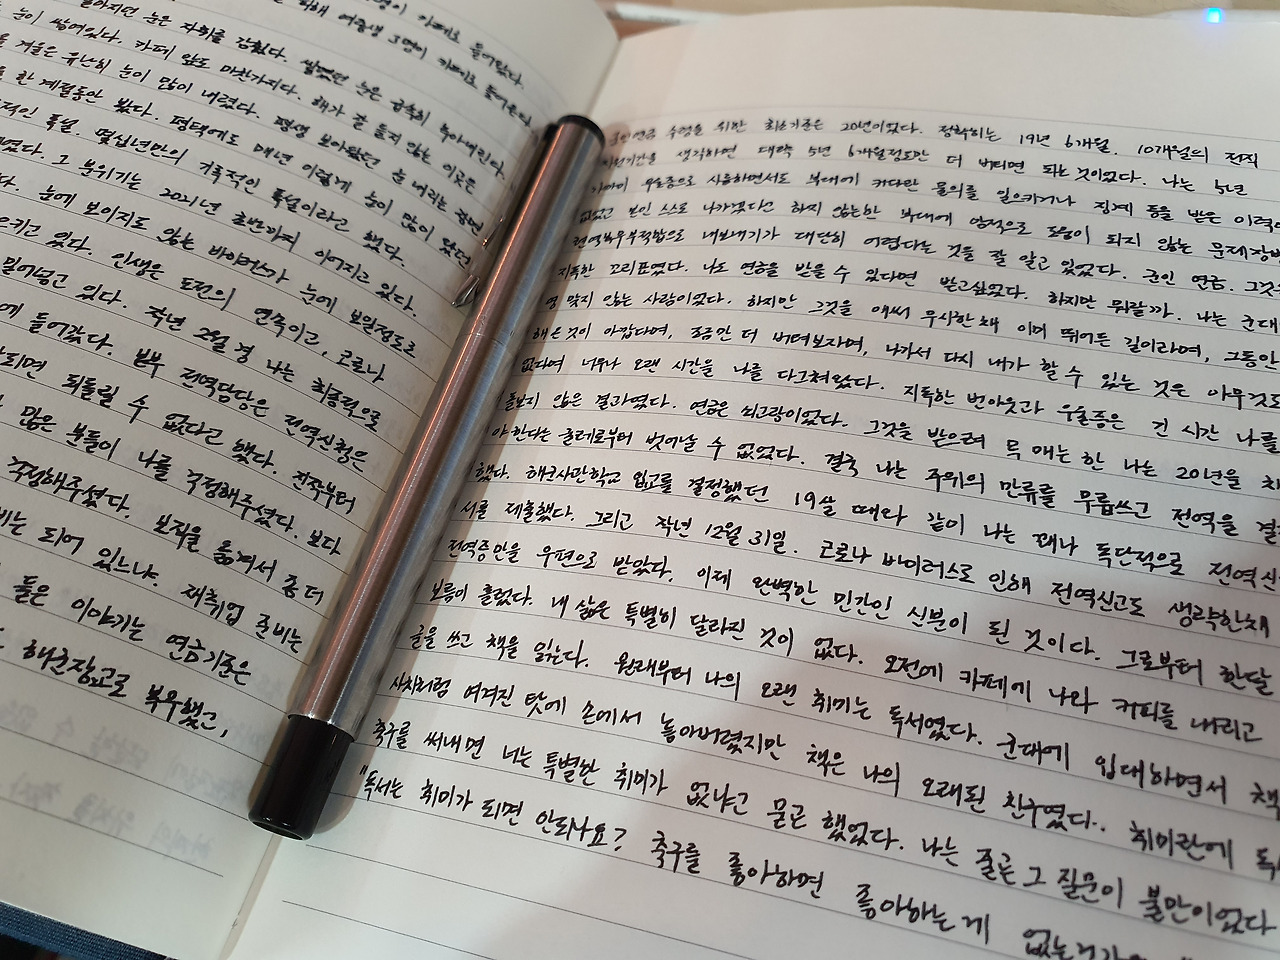 카페로 들어왔다.
여중생 3명이 카페로 들어온다
눈은 자취를 감췄다. 쌓였던 눈은 금속히 녹아내린다.
눈이 쌓여있다. 카페 앞도 마찬가지다. 해가 잘 들지 않는 이곳은
겨울은 유난히 눈이 많이 내렸다. 평생 보아왔던 눈 내리는 풍경
한 계절동안 봤다. 평택에도 매년 이렇게 눈이 많이 왔던
폭설. 몇십년만의 기록적인 폭설이라고 했다.
그 분위기는 2021년 초반까지 이어지고 있다.
눈에 보이지도 않는 바이러스가 눈에 보일정도로
있다. 인생은 도전의 연속이고, 코로나
밀어넣고 있다. 작년 2월 경 나는 최종적으로
들어갔다. 본부 전역담당은 전역신청은
되면 되돌릴 수 없다고 했다. 전작부터
많은 분들이 나를 걱정해주셨다. 보다
걱정해주셨다. 보직을 옮겨서 좀 더
되어 있느냐. 재취업 준비는
들은 이야기는 연금기준은
해군장교로 복무했고,
수령을 위한 최소기준은 20년이었다. 정확히는 19년 6개월. 10개월의 전직
생각하면 대략 5년 6개월정도만 더 버티면 되는 것이었다. 나는 5년
우울증으로 시름하면서도 부대에 커다란 물의를 일으키거나 징계 등을 받은 이력
본인 스스로 나가겠다고 하지 않는한 부대에 영적으로 도움이 되지 않는 문제장병
내보내기가 대단히 어렵다는 것을 잘 알고 있었다. 군인 연금. 그것
지독한 꼬리표였다. 나도 연금을 받을 수 있다면 받고싶었다. 하지만 뭐랄까. 나는 군대
맞지 않는 사람이었다. 하지만 그것을 애써 무시한채 이미 뛰어든 길이라며, 그동안
해온것이 아깝다며, 조금만 더 버텨보자며, 나가서 다시 내가 할 수 있는 것은 아무것도
없다며 너무나 오랜 시간을 나를 다그쳐왔다. 지독한 번아웃과 우울증은 긴 시간 나를
돌보지 않은 결과였다. 연금은 쇠고랑이었다. 그것을 받으려 목 매는 한 나는 20년을 채
야한다는 굴레로부터 벗어날 수 없었다. 결국 나는 주위의 만류를 무릅쓰고 전역을 결
했다. 해군사관학교 입교를 결정했던 19살 때와 같이 나는 꽤나 독단적으로 전역신
서를 제출했다. 그리고 작년 12월 31일. 코로나 바이러스로 인해 전역신고도 생략한채
전역증만을 우편으로 받았다. 이제 완벽한 민간인 신분이 된 것이다. 그로부터 한달
보름이 흘렀다. 내 삶은 특별히 달라진 것이 없다. 오전에 카페에 나와 커피를 내리고
글을 쓰고 책을 읽는다. 원래부터 나의 오랜 취미는 독서였다. 군대에 입대하면서 책
사치처럼 여겨진 탓에 손에서 놓아버렸지만 책은 나의 오래된 친구였다.. 취미란에 독
축구를 써내면 너는 특별한 취미가 없냐고 묻곤 했었다. 나는 줄곧 그 질문이 불만이었다
"독서는 취미가 되면 안되나요? 축구를 좋아하면 좋아하는게 없는건가